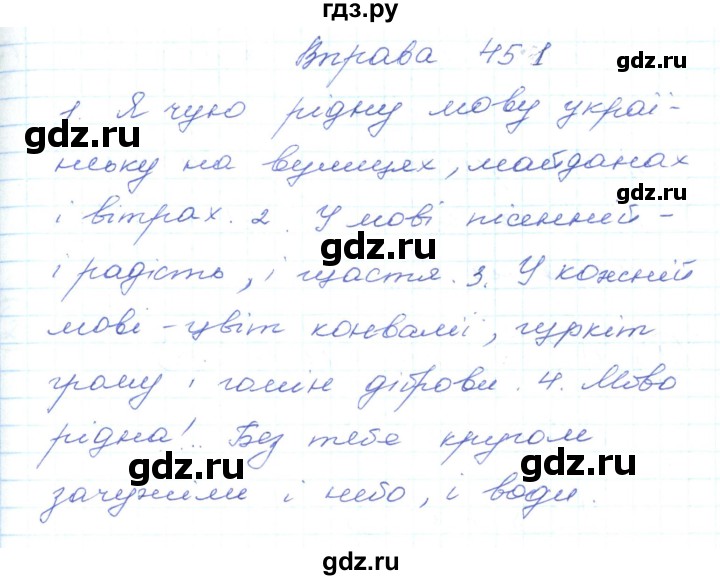 гдз.ру
Вправа 451
gdz.ru
1. Я чую рідну мову украї-
gdz.ru
нську на вулицях, майданах
gdz.ru
і вітрах. 2. У мові пісенній -
gdz.ru
і радість, і щастя. 3. У кожній
мові - цвіт конвалії, гуркіт
gdz.ru
грому і гомін діброви. 4. Мово
gdz.ru
рідна!.. Без тебе кругом
gdz.ru
gdz.ru
зачужіли і небо, і води.
gdz.ru